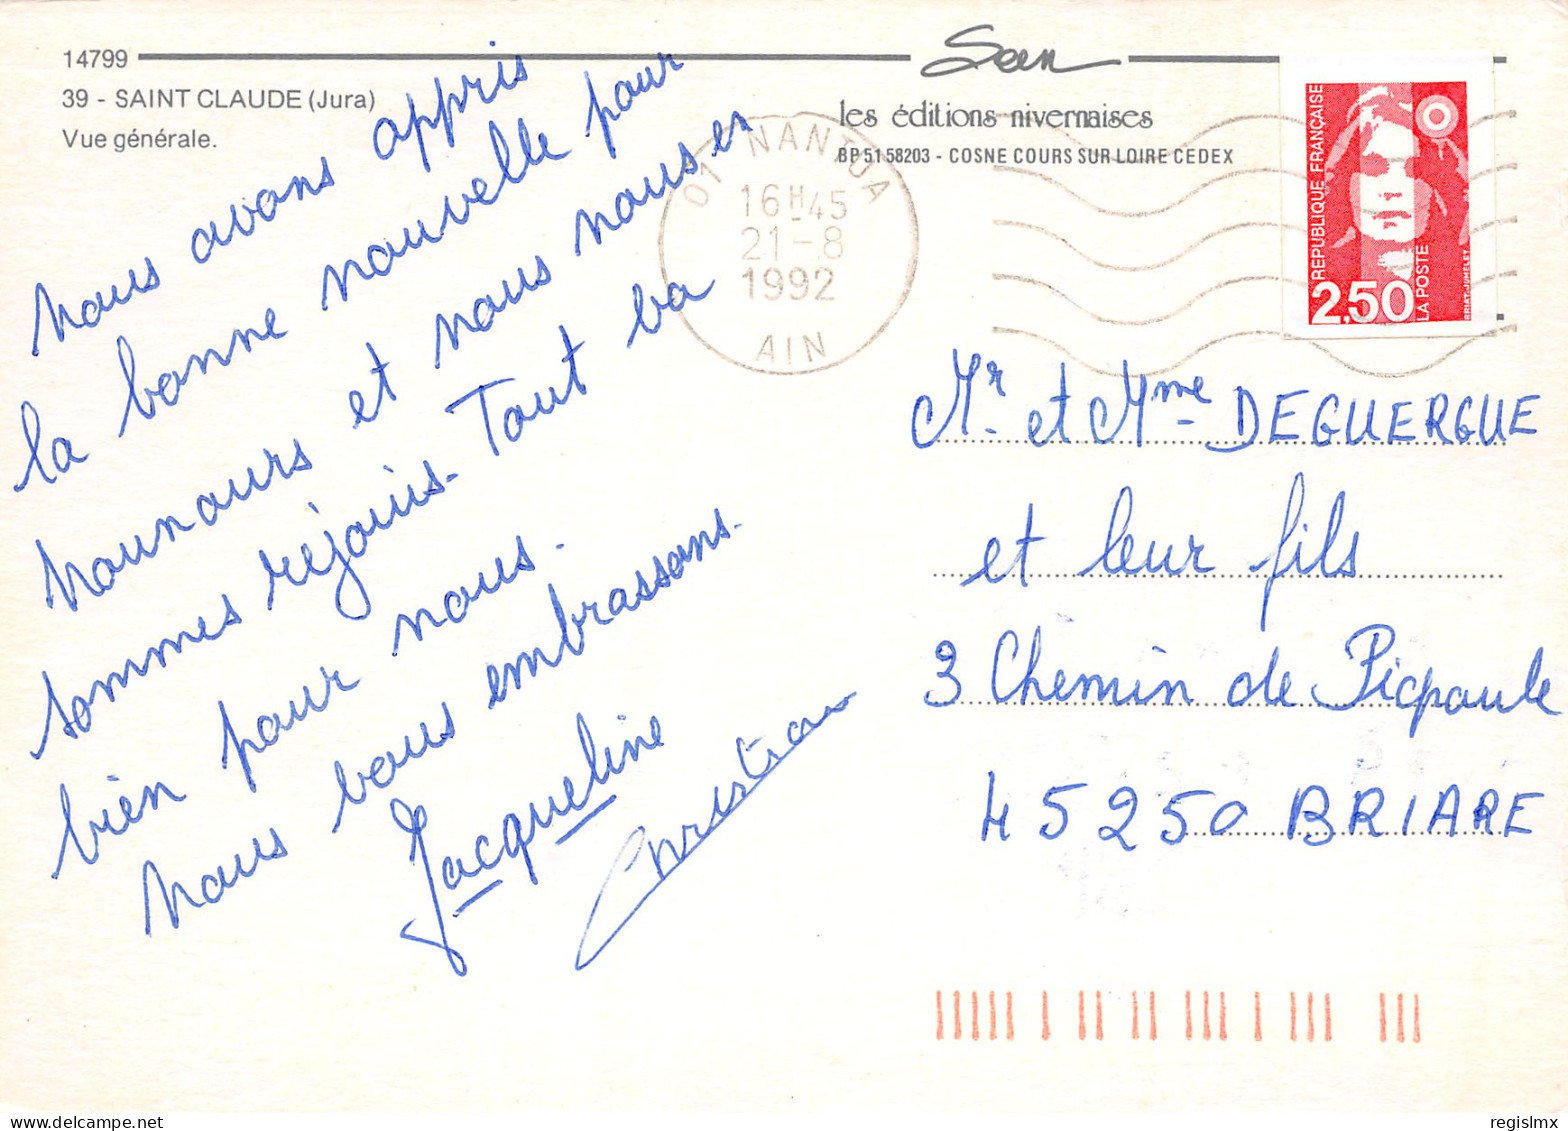 14799
39 - SAINT CLAUDE (Jura)
Vue générale.
Sen
les éditions nivernaises
BP 51 58203 - COSNE COURS SUR LOIRE CEDEX
01 NANTUA
16H45
21-8
1992
AIN
REPUBLIQUE FRANÇAISE
LA POSTE
2,50
BRIAT-JUMELET
Nous avons appris
la bonne nouvelle pour
Nounours et nous nous en
sommes réjouis. Tout va
bien pour nous.
Nous vous embrassons.
Jacqueline
Christian
Mr et Mme DEGUERGUE
et leur fils
3 Chemin de Picpaule
45250 BRIARE
regislmx